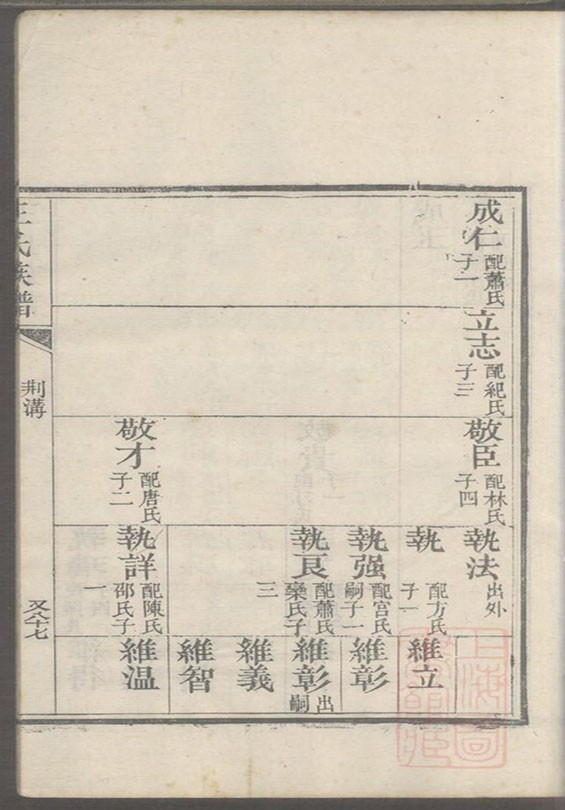 成仁
配蕭氏
子一
立志
配紀氏
子三
敬臣
配林氏
子四
執法
出外
執
配方氏
子一
維立
執强
配宮氏
嗣子一
維彰
執良
配蕭氏
欒氏子
三
維彰
出嗣
維義
維智
敬才
配唐氏
子二
執詳
配陳氏
邵氏子
一
維温
王氏族譜
荆溝
又六十七